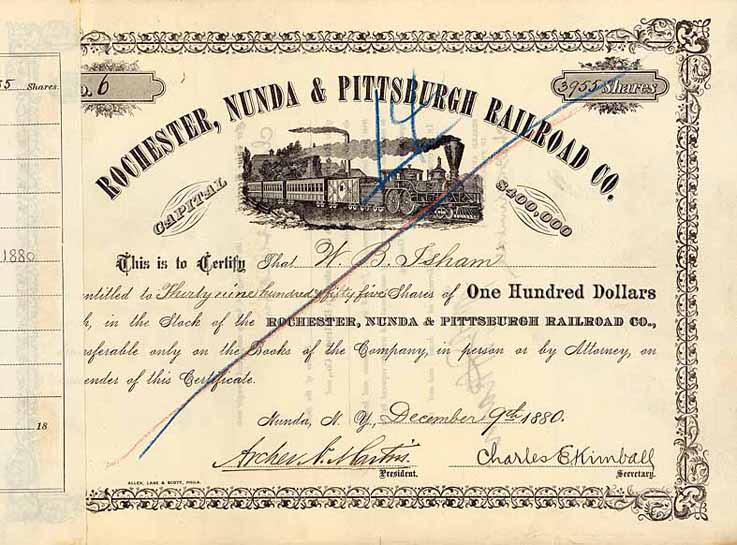 35 Shares.
o. 6
3955 Shares
ROCHESTER, NUNDA & PITTSBURGH RAILROAD CO.
14
CAPITAL $400,000
This is to Certify That W. B. Isham
entitled to Thirty nine hundred & fifty five Shares of One Hundred Dollars
h, in the Stock of the ROCHESTER, NUNDA & PITTSBURGH RAILROAD CO.,
nsferable only on the Books of the Company, in person or by Attorney, on
ender of this Certificate.
1880
18
Nunda, N. Y., December 9th 1880.
Archer N. Martin. Charles E Kimball
President. Secretary.
ALLEN, LANE & SCOTT, PHILA.